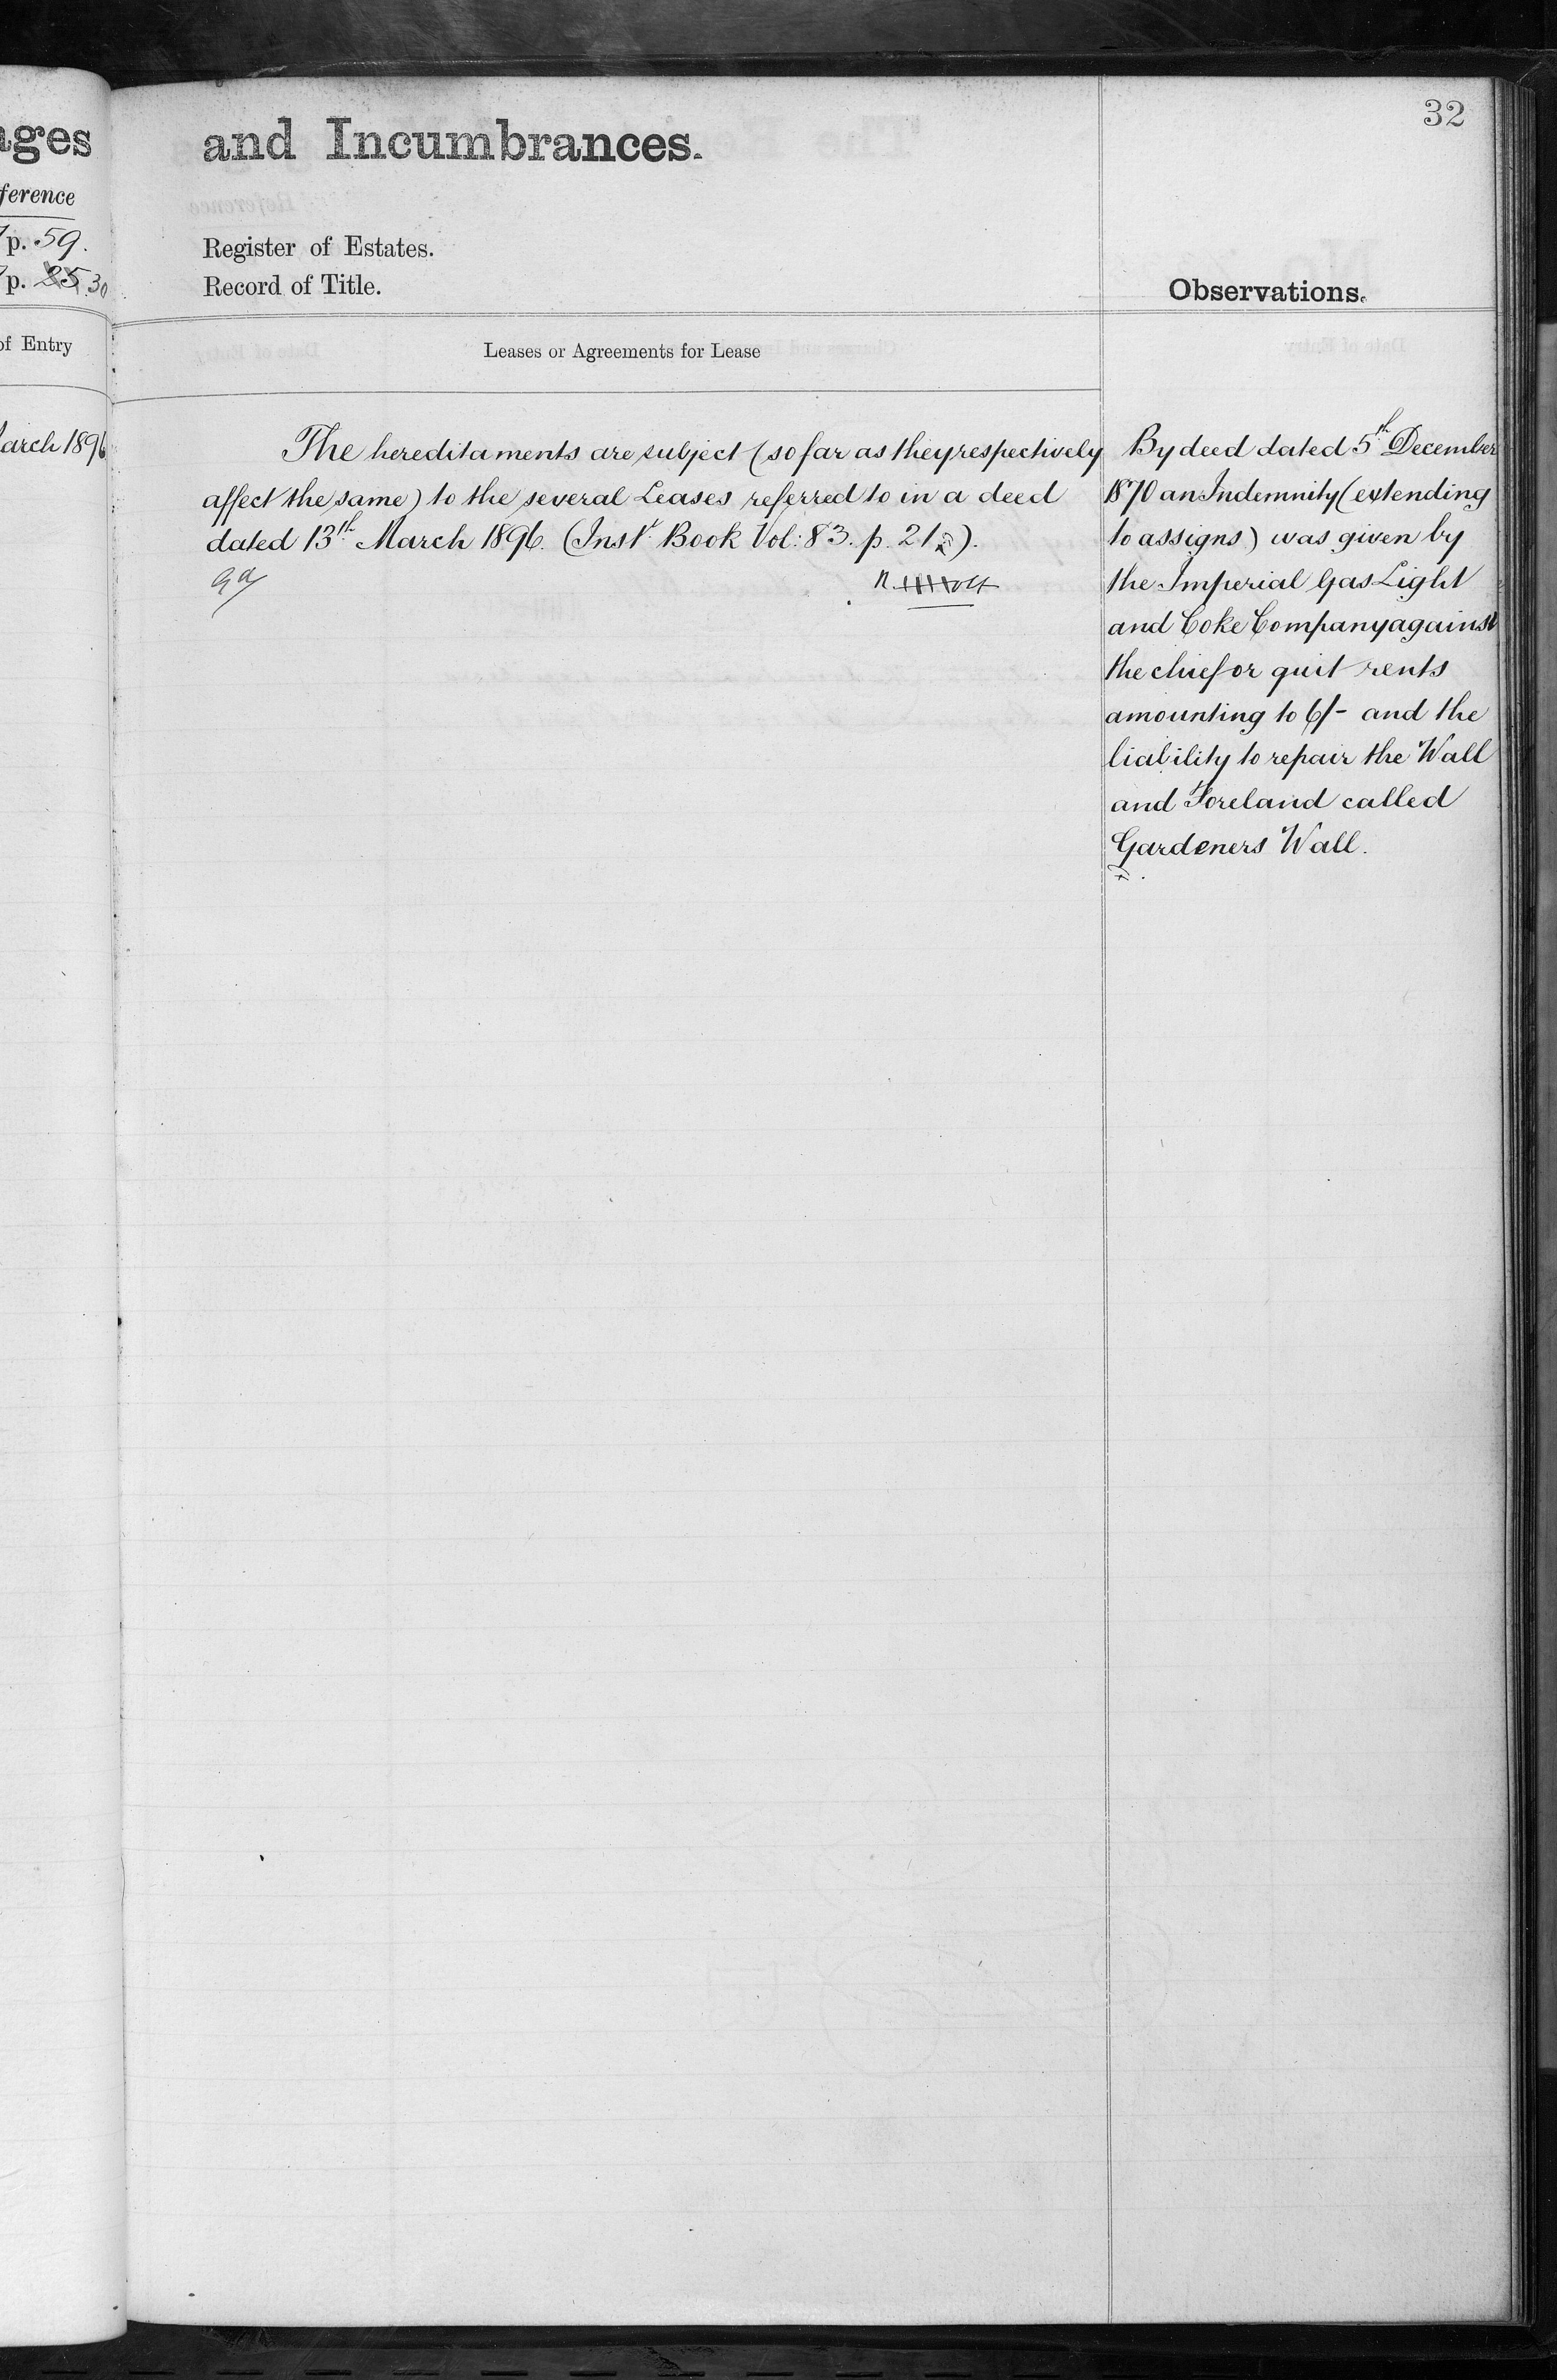 ages
ference
p. 59.
p. 25 30
of Entry
arch 1896
32
and Incumbrances.
Register of Estates.
Record of Title.
Leases or Agreements for Lease
The hereditaments are subject (so far as they respectively
affect the same) to the several Leases referred to in a deed
dated 13th March 1896. (Inst. Book Vol: 83. p. 21).
Observations.
By deed dated 5th December
1870 an Indemnity (extending
to assigns) was given by
the Imperial Gas Light
and Coke Company against
the chief or quit rents
amounting to 6/- and the
liability to repair the Wall
and Foreland called
Gardeners Wall.